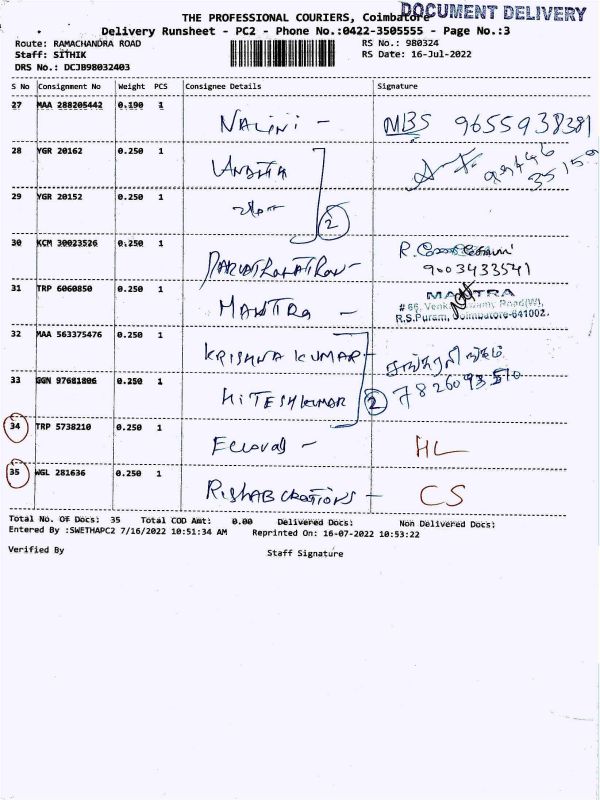 DOCUMENT DELIVERY
THE PROFESSIONAL COURIERS, Coimbatore
Delivery Runsheet - PC2 - Phone No.:0422-3505555 - Page No.:3
Route: RAMACHANDRA ROAD RS No.: 980324
Staff: SITHIK RS Date: 16-Jul-2022
DRS No.: DCJB98032403
S No Consignment No Weight PCS Consignee Details Signature
27 MAA 288205442 0.190 1
NALINI - MBS 9655938381
28 YGR 20162 0.250 1
29 YGR 20152 0.250 1
2
30 KCM 30023526 0.250 1
R.
9003433541
31 TRP 6060850 0.250 1
MANTRA - MANTRA
# 66, Road(W),
R.S.Puram, Coimbatore-641002.
32 MAA 563375476 0.250 1
KRISHNA KUMAR
33 GGN 97681806 0.250 1
HITESHKUMAR 2
34 TRP 5738210 0.250 1
HL
35 WGL 281636 0.250 1
RISHAB CREATIONS - CS
Total No. Of Docs: 35 Total COD Amt: 0.00 Delivered Docs: Non Delivered Docs:
Entered By :SWETHAPC2 7/16/2022 10:51:34 AM Reprinted On: 16-07-2022 10:53:22
Verified By Staff Signature